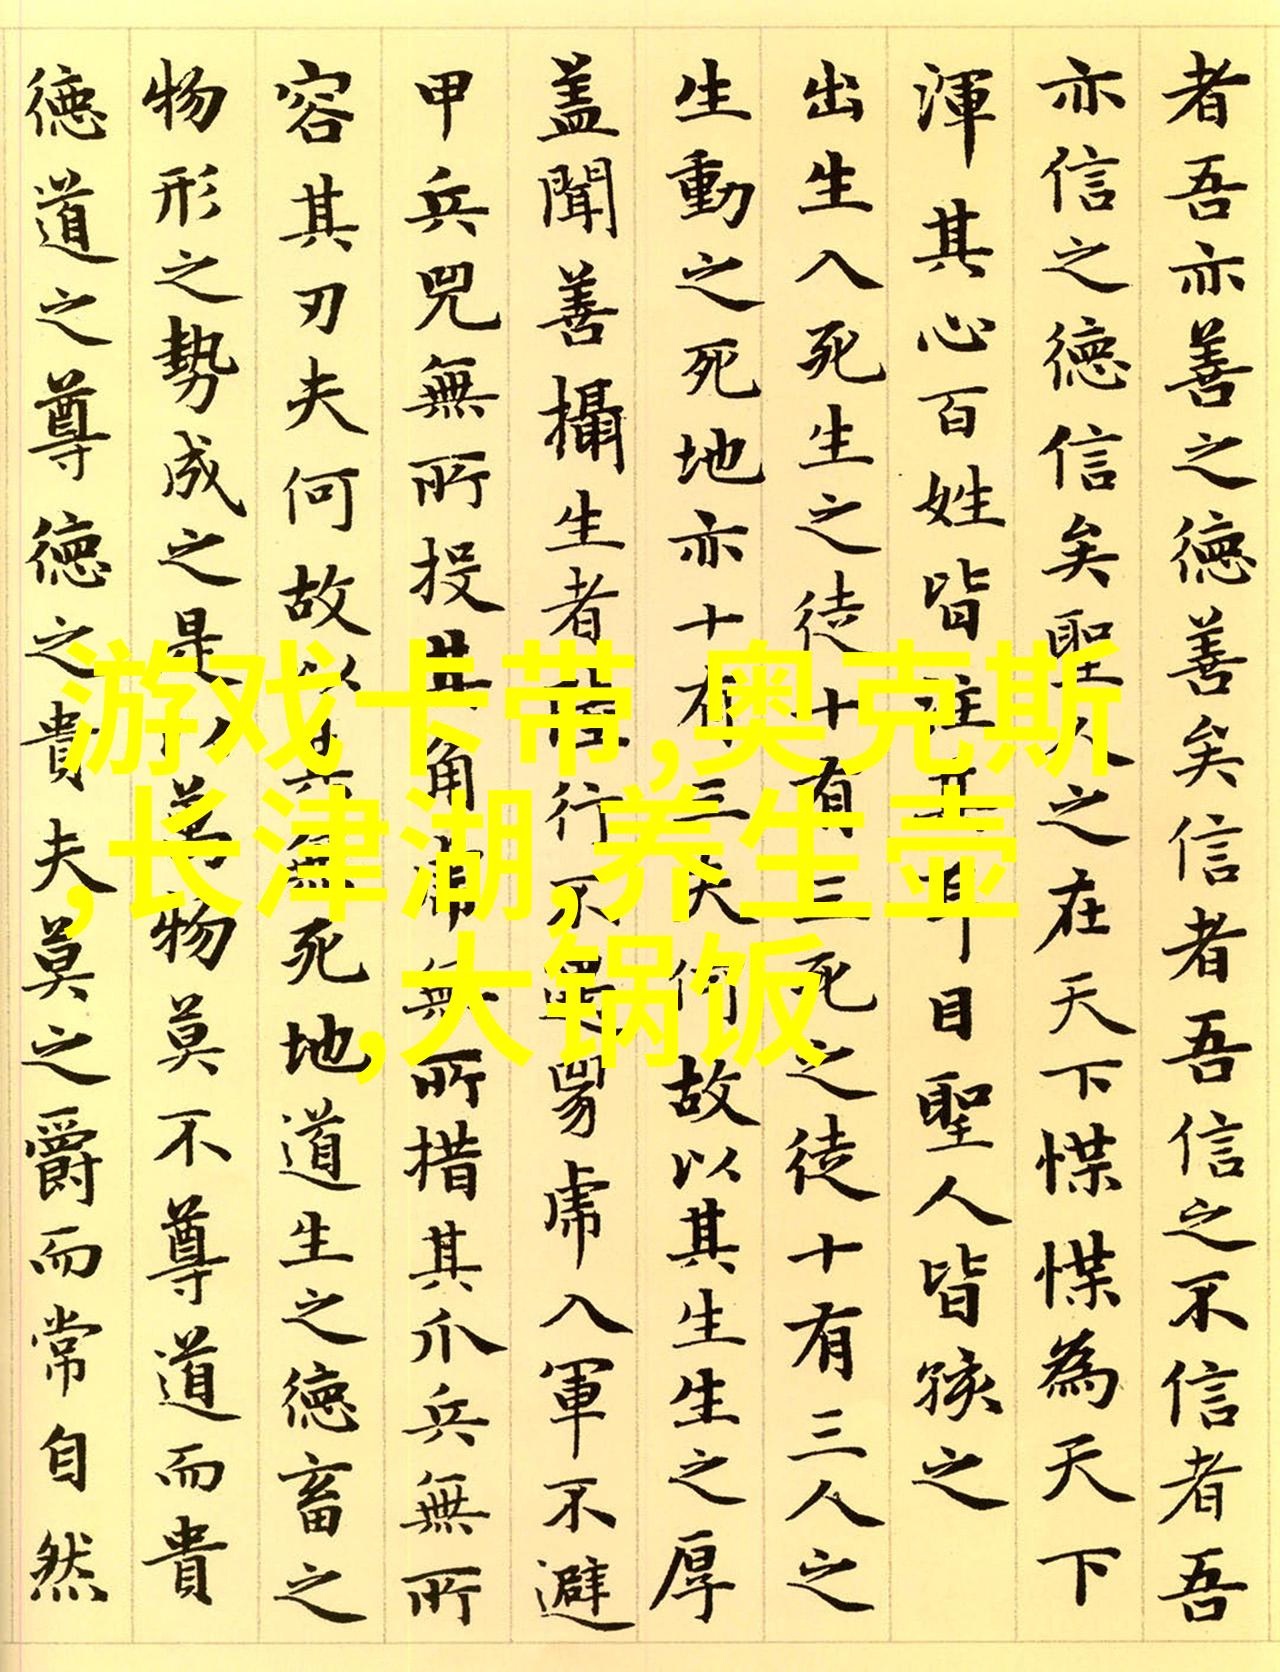 者吾亦善之德善矣信者吾信之不信者吾
亦信之德信矣聖人之在天下惵惵為天下
渾其心百姓皆注其耳目聖人皆孩之
出生入死生之徒十有三死之徒十有三人之
生動之死地亦十有三夫何故以其生生之厚
蓋聞善攝生者陸行不遇兕虎入軍不避
甲兵兕無所投其角虎無所措其爪兵無所
容其刃夫何故以其無死地道生之德畜之
物形之勢成之是以萬物莫不尊道而貴
德道之尊德之貴夫莫之爵而常自然
游戏卡带,奥克斯
,长津湖,养生壶
,大锅饭